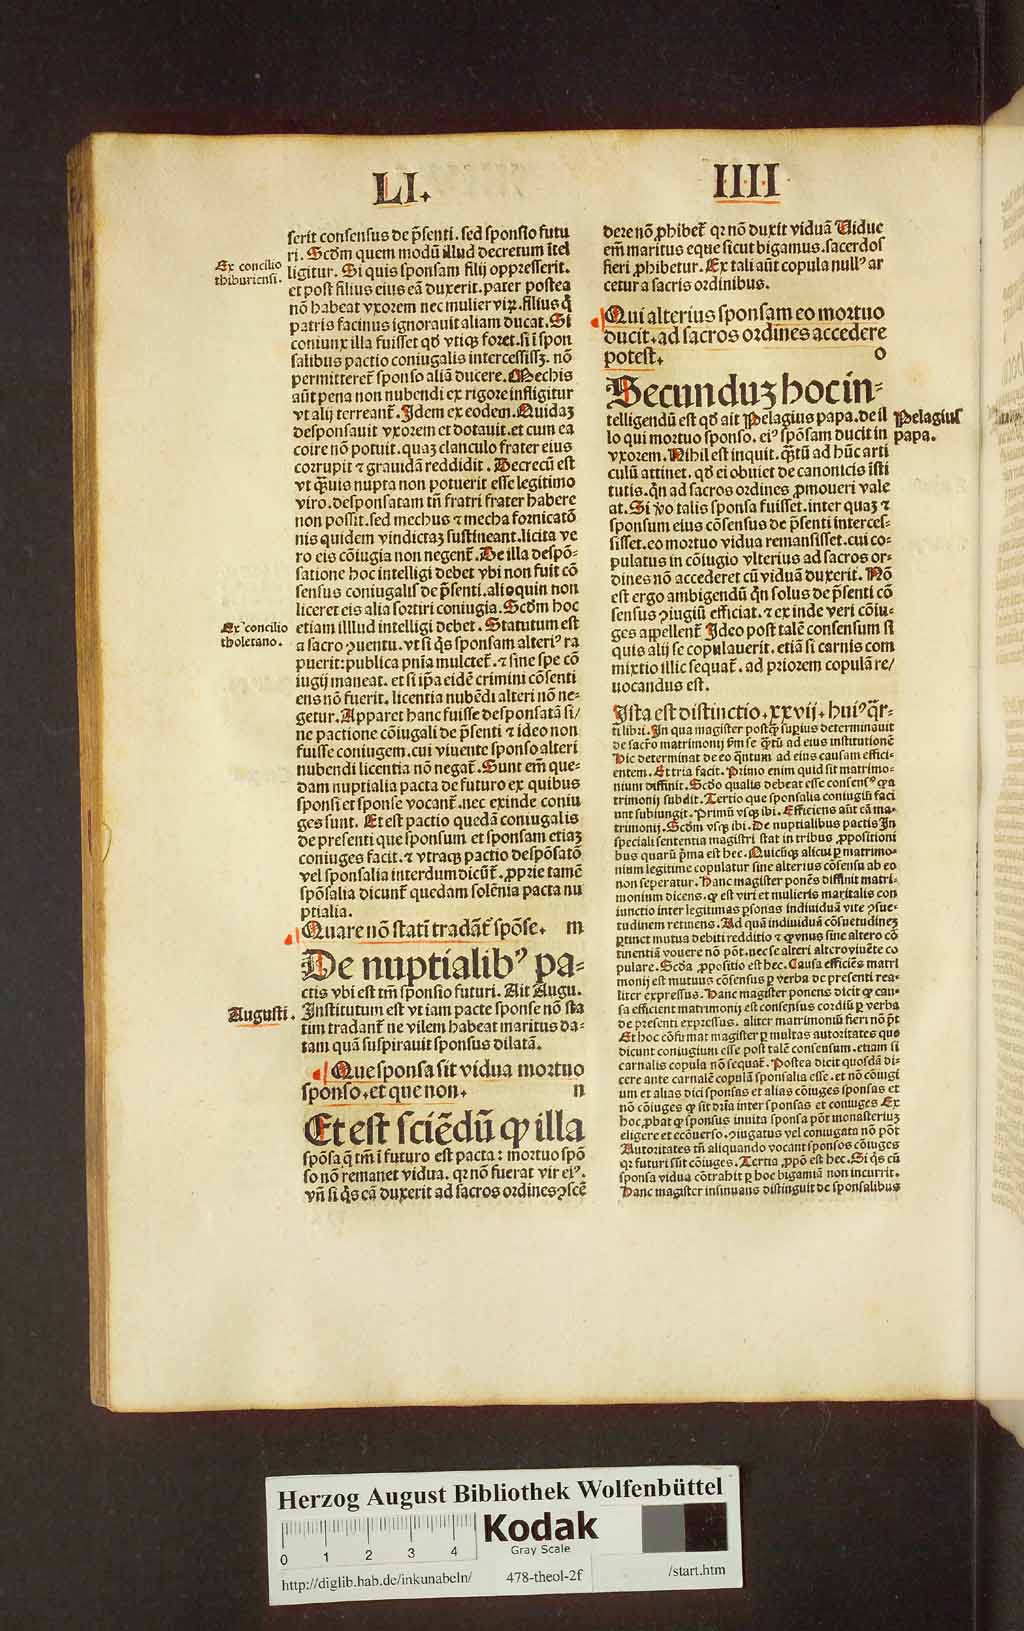 LI.
IIII
Ex concilio
thiburiensi.
serit consensus de p̃senti. sed sponsio futu
ri. Scd̃m quem modũ illud decretum ĩtel
ligitur. Si quis sponsam filij oppresserit.
et post filius eius eã duxerit. pater postea
nõ habeat vxorem nec mulier viꝝ. filius q̃
patris facinus ignorauit aliam ducat. Si
coniunx illa fuisset qð vtiqꝫ foret. si ĩ spon
salibus pactio coniugalis intercessissꝫ. nõ
permitteret̃ sponso aliã ducere. Mechis
aũt pena non nubendi ex rigore infligitur
vt alij terreant̃. Idem ex eodem. Quidaꝫ
desponsauit vxorem et dotauit. et cum ea
coire nõ potuit. quaꝫ clanculo frater eius
corrupit ⁊ grauidã reddidit. Decrecũ est
vt q̃uis nupta non potuerit esse legitimo
viro. desponsatam tñ fratri frater habere
non possit. sed mechus ⁊ mecha fornicatõ
nis quidem vindictaꝫ sustineant. licita ve
ro eis cõiugia non negent̃. De illa despõ-
satione hoc intelligi debet vbi non fuit cõ
sensus coniugalis de p̃senti. alioquin non
liceret eis alia sortiri coniugia. Scd̃m hoc
etiam illlud intelligi debet. Statutum est
a sacro ꝯuentu. vt si q̃s sponsam alteriꝰ ra
puerit: publica pñia mulctet̃. ⁊ sine spe cõ
iugij maneat. et si ip̃a eidẽ crimini cõsenti
ens nõ fuerit. licentia nubẽdi alteri nõ ne-
getur. Apparet hanc fuisse desponsatã si/
ne pactione cõiugali de p̃senti ⁊ ideo non
fuisse coniugem. cui viuente sponso alteri
nubendi licentia nõ negat̃. Sunt em̃ que-
dam nuptialia pacta de futuro ex quibus
sponsi et sponse vocant̃. nec exinde coniu
ges sunt. Et est pactio quedã coniugalis
de presenti que sponsum et sponsam etiaꝫ
coniuges facit. ⁊ vtraqꝫ pactio despõsatõ
vel sponsalia interdum dicũt̃. ꝓprie tamẽ
spõsalia dicunt̃ quedam solẽnia pacta nu
ptialia.
Ex concilio
tholetano.
Quare nõ statĩ tradãt̃ spõse. m
De nuptialibꝰ pa-
ctis vbi est tm̃ sponsio futuri. Ait Augu.
Institutum est vt iam pacte sponse nõ sta
tim tradant̃ ne vilem habeat maritus da-
tam quã suspirauit sponsus dilatã.
Augusti.
Que sponsa sit vidua mortuo
sponso. et que non. n
Et est sciẽdũ ꝙ illa
spõsa q̃ tm̃ ĩ futuro est pacta: mortuo spõ
so nõ remanet vidua. qꝛ nõ fuerat vir eiꝰ.
vñ si q̃s eã duxerit ad sacros ordines ꝯscẽ
dere nõ ꝓhibet̃ qꝛ nõ duxit viduã Vidue
em̃ maritus eque sicut bigamus. sacerdos
fieri ꝓhibetur. Ex tali aũt copula nullꝰ ar
cetur a sacris ordinibus.
Qui alterius sponsam eo mortuo
ducit. ad sacros ordines accedere
potest. o
Secunduꝫ hoc in-
telligendũ est qð ait Pelagius papa. de il
lo qui mortuo sponso. eiꝰ spõsam ducit in
vxorem. Nihil est inquit. q̃tũ ad hũc arti
culũ attinet. qð ei obuiet de canonicis ĩsti
tutis. q̃n ad sacros ordines ꝓmoueri vale
at. Si ṽo talis sponsa fuisset. inter quaꝫ ⁊
sponsum eius cõsensus de p̃senti interces-
sisset. eo mortuo vidua remansisset. cui co-
pulatus in cõiugio vlterius ad sacros or-
dines nõ accederet cũ viduã duxerit. Nõ
est ergo ambigendũ q̃n solus de p̃senti cõ
sensus ꝯiugiũ efficiat. ⁊ ex inde veri cõiu-
ges appellent̃ Ideo post talẽ consensum si
quis alij se copulauerit. etiã si carnis com
mixtio illic sequat̃. ad priorem copulã re/
uocandus est.
Pelagius
papa.
Ista est distinctio. xxvij. huiꝰ q̃r-
ti libri. In qua magister postq̃ suꝑius determinauit
de sacro matrimonij ꝑm se q̃tũ ad eius institutionẽ
Hic determinat de eo q̃ntum ad eius causam effici-
entem. Et tria facit. Primo enim quid sit matrimo-
nium diffinit. Scd̃o qualis debeat esse consensꝰ q̃ a
trimonij subdit. Tertio que sponsalia coniugiũ faci
unt subiungit. Primũ vsqꝫ ibi. Efficiens aũt cã ma-
trimonij. Scd̃m vsqꝫ ibi. De nuptialibus pactis In
speciali sententia magistri stat in tribus ꝓpositioni
bus quarũ p̃ma est hec. Quicũqꝫ alicui ꝑ matrimo-
nium legitime copulatur sine alterius cõsensu ab eo
non seperatur. Hanc magister ponẽs diffinit matri-
monium dicens. ꝙ est viri et mulieris maritalis con
iunctio inter legitimas ꝑsonas indiuiduã vite ꝯsue-
tudinem retinens. Ad quã indiuiduã cõsuetudineꝫ
ꝑtinct mutua debiti redditio ⁊ ꝙ vnus sine altero cõ
tinentiã vouere nõ põt. nec se alteri altero viuẽte co
pulare. Scd̃a ꝓpositio est hec. Causa efficiẽs matri
monij est mutuus cõsensus ꝑ verba de presenti rea-
liter expressus. Hanc magister ponens dicit ꝙ cau-
sa efficient matrimonij est consensus cordiũ ꝑ verba
de presenti expressus. aliter matrimoniũ fieri nõ põt
Et hoc cõfirmat magister ꝑ multas autoritates que
dicunt coniugium esse post talẽ consensum. etiam si
carnalis copula nõ sequat̃. Postea dicit quosdã di-
cere ante carnalẽ copulã sponsalia esse. et nõ cõiugi
um et alias dici sponsas et alias cõiuges sponsas et
nõ cõiuges ꝙ sit dr̃ia inter sponsas et coniuges Ex
hoc ꝓbat ꝙ sponsus inuita sponsa põt monasteriuꝫ
eligere et ecõuerso. ꝯiugatus vel coniugata nõ põt
Autoritates tñ aliquando vocant sponsos cõiuges
qꝛ futuri sũt cõiuges. Tertia ꝓpõ est hec. Si q̃s cũ
sponsa vidua cõtrahit ꝑ hoc bigamiã non incurrit.
Hanc magister insinuans distinguit de sponsalibus
Herzog August Bibliothek Wolfenbüttel
Kodak
Gray Scale
0 1 2 3 4
http://diglib.hab.de/inkunabeln/ 478-theol-2f /start.htm